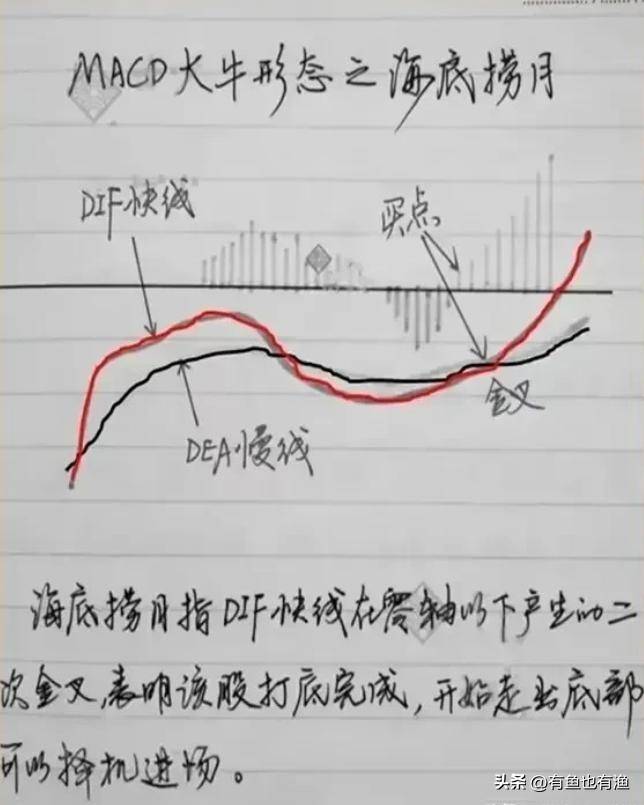 MACD大牛形态之海底捞月
DIF快线
买点
金叉
DEA慢线
海底捞月指DIF快线在零轴以下产生的二
次金叉,表明该股打底完成,开始走出底部
可以择机进场。
头条 @有鱼也有渔